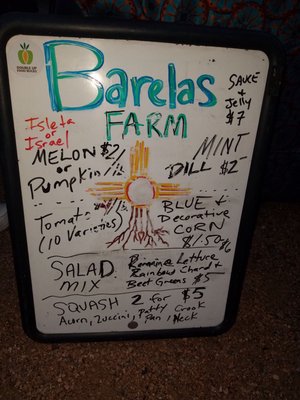 DOUBLE UP
FOOD BUCKS
Barelas
FARM
SAUCE
+
Jelly
$7
Isleta
or
Israel
MELON $2/
or
Pumpkin
MINT
DILL $2
Tomato
(10 Varieties)
BLUE +
Decorative
CORN
SALAD
MIX
Romaine Lettuce
Rainbow Chard +
Beet Greens $5
SQUASH 2 for $5
Acorn, Zuccini, Patty Pan, Crook Neck